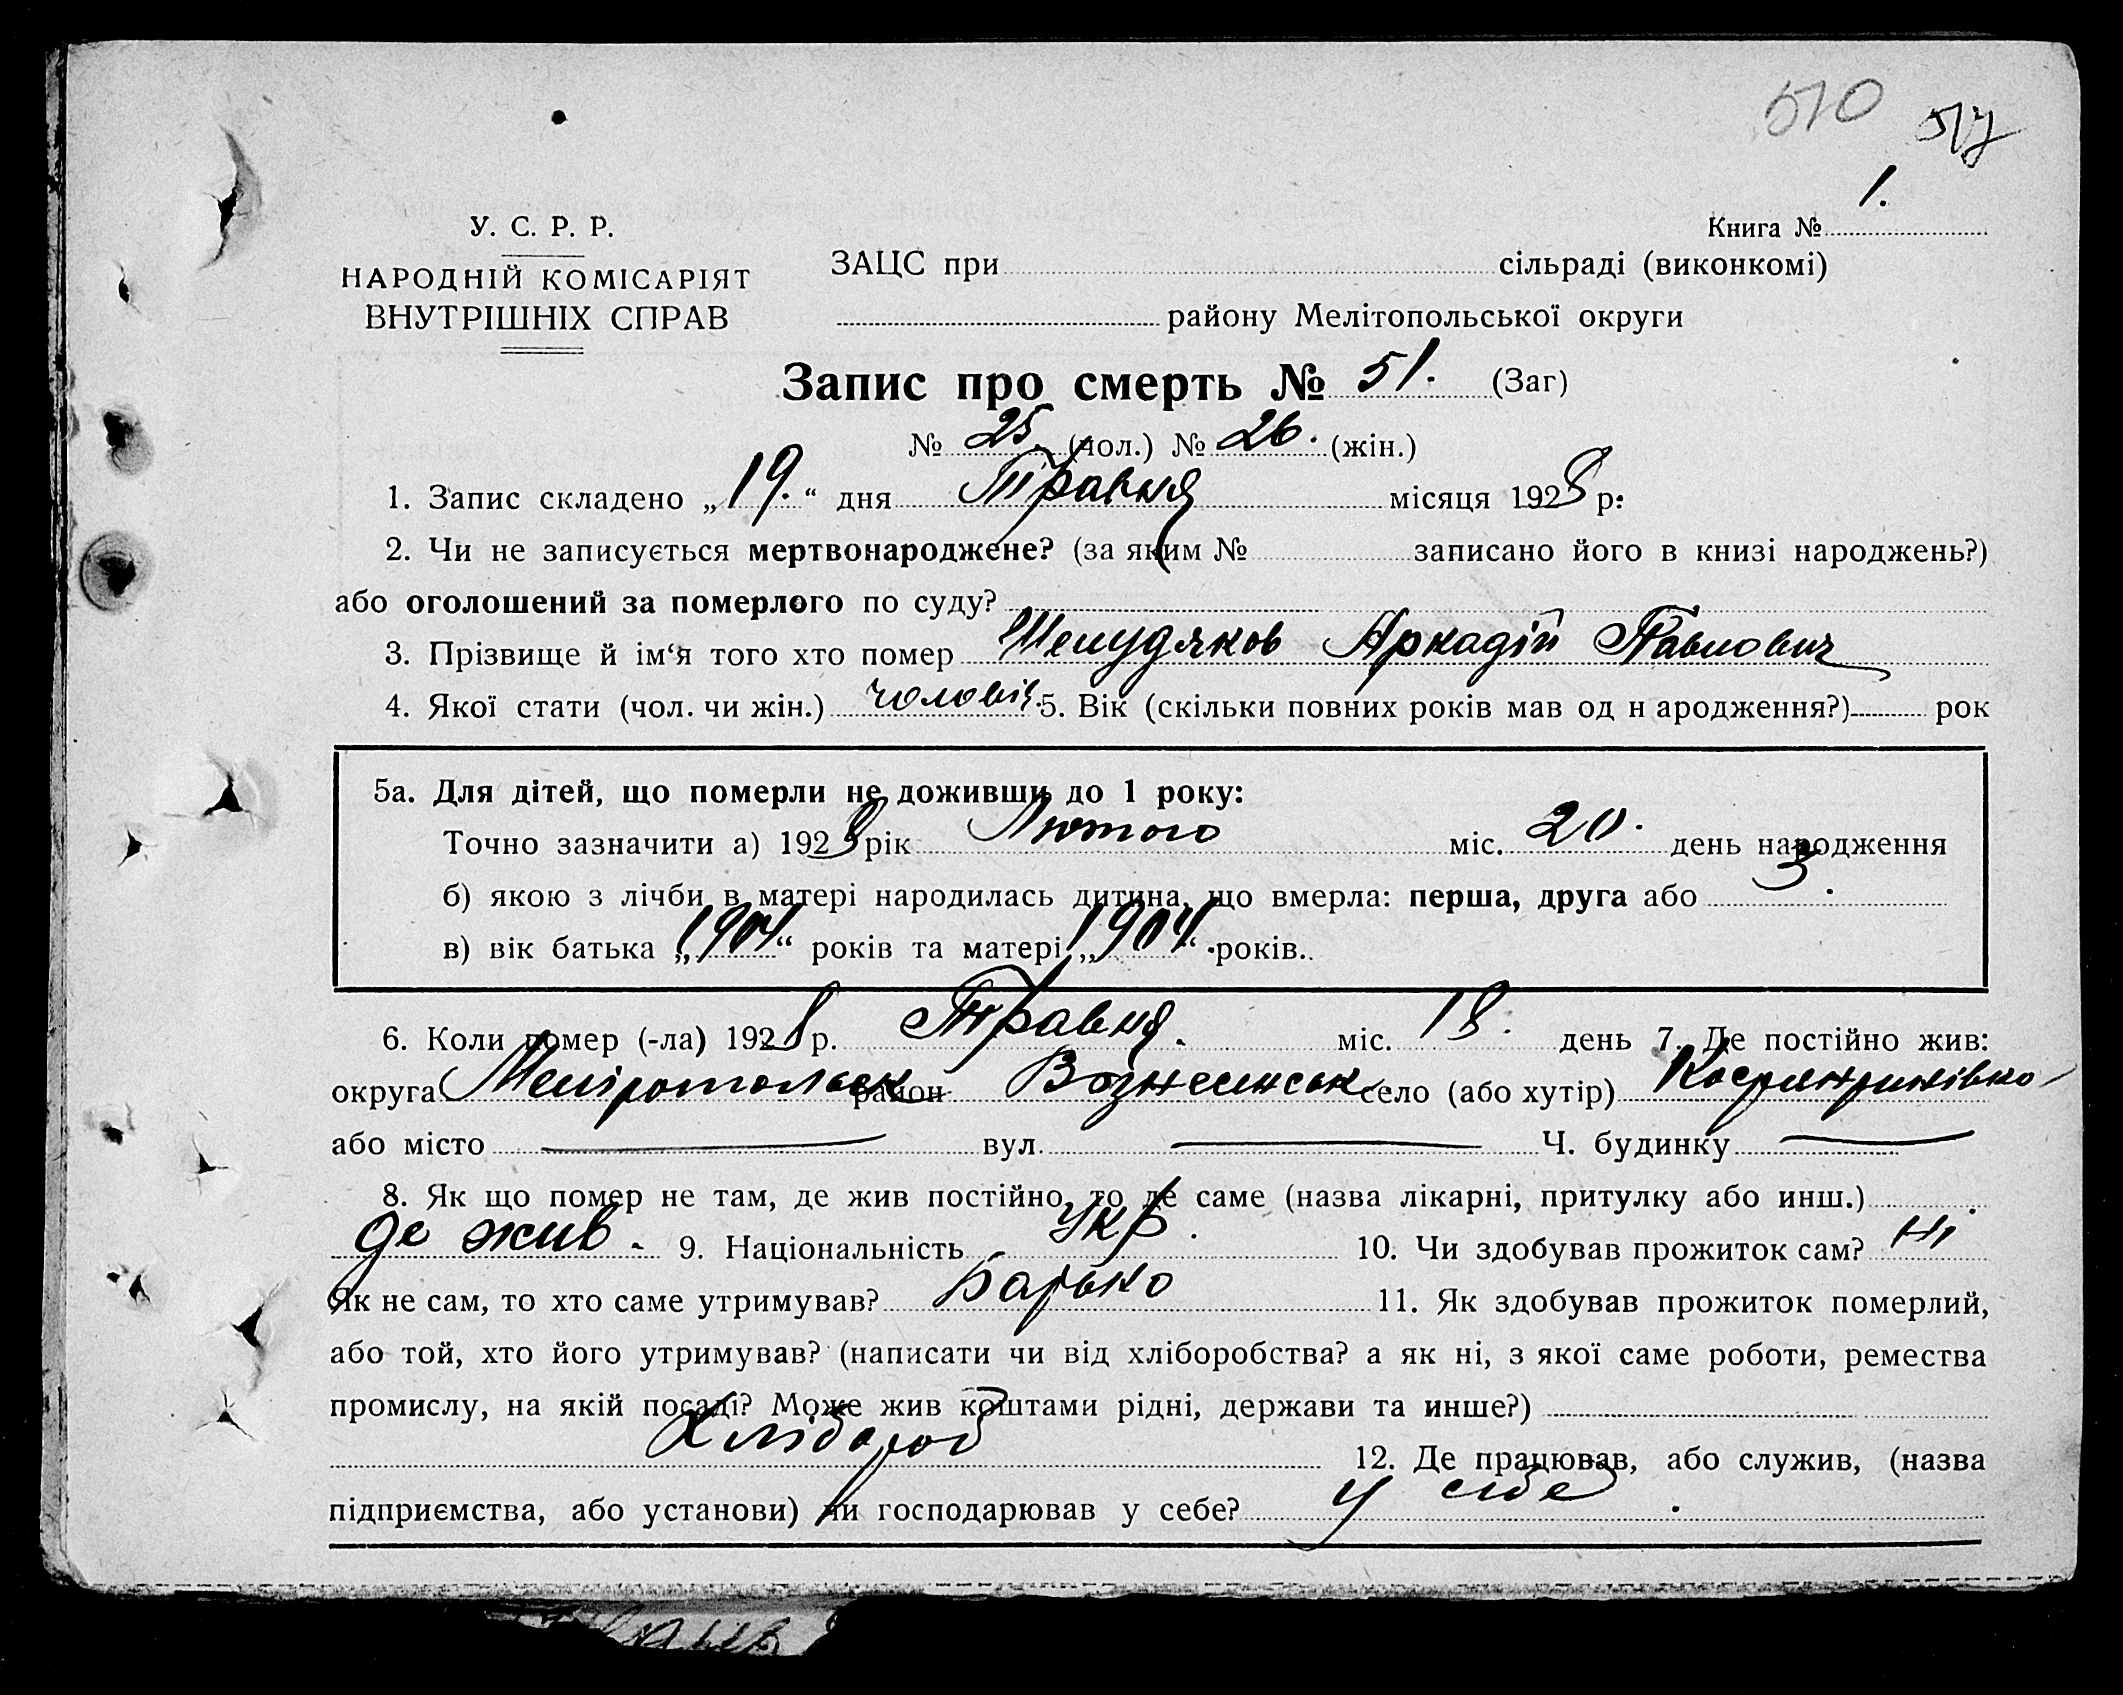 510 517
У. С. Р. Р.
Книга № 1.
НАРОДНІЙ КОМІСАРІЯТ
ВНУТРІШНІХ СПРАВ
ЗАЦС при сільраді (виконкомі)
району Мелітопольської округи
Запис про смерть № 51. (Заг)
№ 25 (чол.) № 26. (жін.)
1. Запис складено „19.“ дня Травня місяця 1928 р:
2. Чи не записується мертвонароджене? (за яким № записано його в книзі народжень?)
або оголошений за померлого по суду?
3. Прізвище й ім‘я того хто помер Шелудяков Аркадій Павлович
4. Якої стати (чол. чи жін.) чоловіч. 5. Вік (скільки повних років мав од н ародження?) рок
5а. Для дітей, що померли не доживши до 1 року:
Точно зазначити а) 1928 рік Лютого міс. 20. день народження
б) якою з лічби в матері народилась дитина, що вмерла: перша, друга або 3.
в) вік батька „1904“ років та матері „1904“ років.
6. Коли помер (-ла) 1928 р. Травня. міс. 18. день 7. Де постійно жив:
округа Мелітопольск район Вознесенськ село (або хутір) Костянтинівка
або місто вул. Ч. будинку
8. Як що помер не там, де жив постійно, то де саме (назва лікарні, притулку або инш.)
де жив. 9. Національність Укр. 10. Чи здобував прожиток сам? Ні
Як не сам, то хто саме утримував? Батько 11. Як здобував прожиток померлий,
або той, хто його утримував? (написати чи від хліборобства? а як ні, з якої саме роботи, ремества
промислу, на якій посаді? Може жив коштами рідні, держави та инше?)
Хлібороб 12. Де працював, або служив, (назва
підприємства, або установи) чи господарював у себе? у себе.